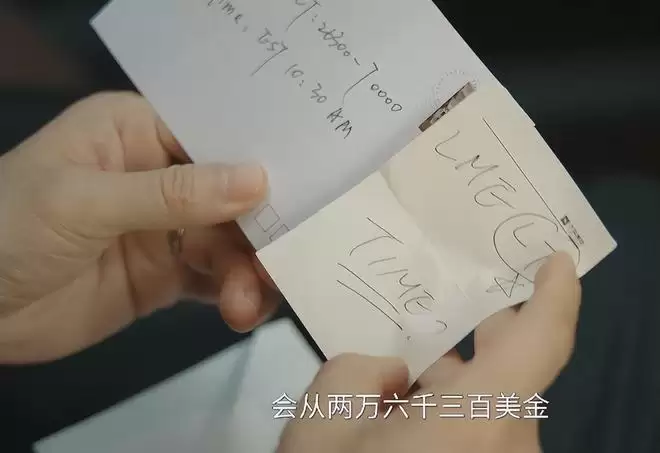 26300-70000
Time: TBJ 10:30 AM
LME (LN
TIME?
会从两万六千三百美金